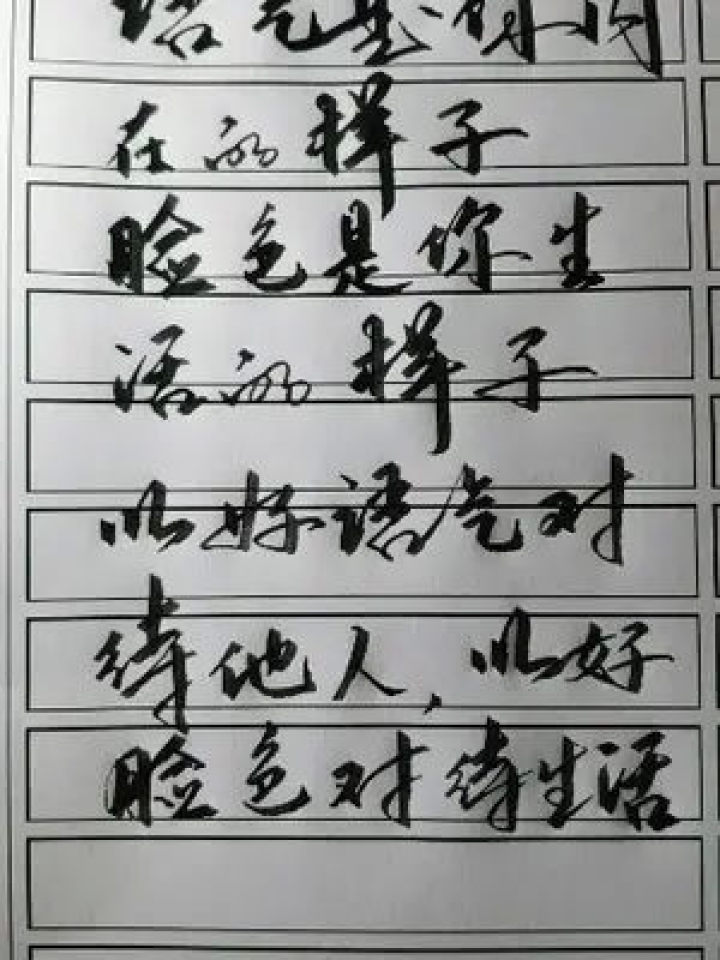 语气是你内
在的样子
脸色是你生
活的样子
以好语气对
待他人,以好
脸色对待生活